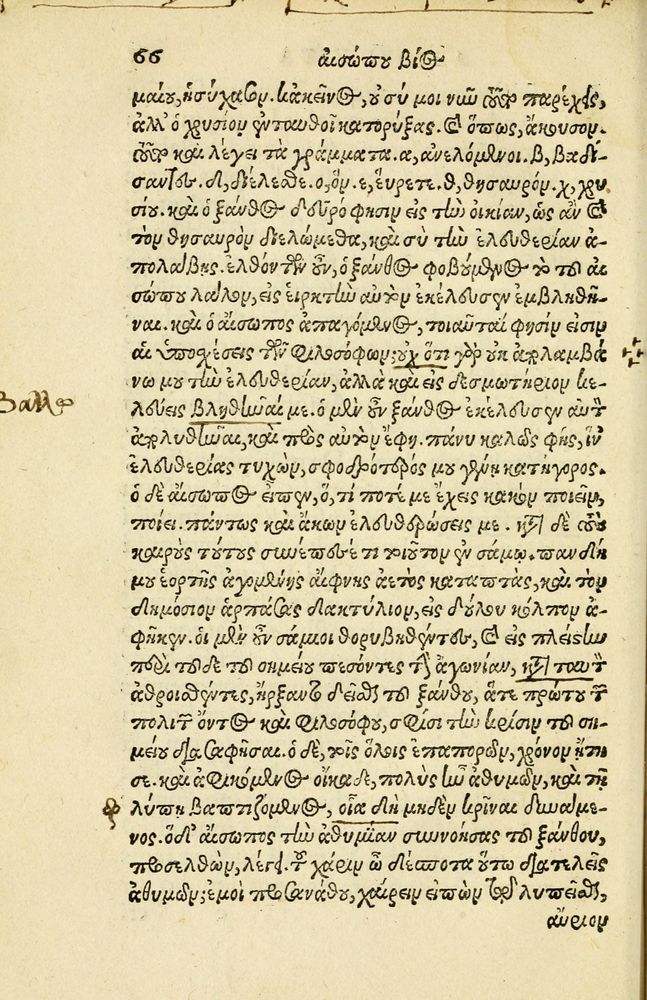 66 αἰσώπου βίος
μαίου, ἡσύχασον. κἀκεῖνος, οὐ σύ μοι νῦν τοῦτο παρέχεις,
ἀλλ' ὁ χρυσίον ἐνταυθοῖ κατορύξας. καὶ ὅπως, ἄκουσον.
τοῦτο καὶ λέγει τὰ γράμματα. α, ἀνελόμενοι. β, βαδί-
σαντες. δ, διέλεσθε. ο, ὃν. ε, εὕρετε. θ, θησαυρόν. χ, χρυ
σίου. καὶ ὁ ξάνθος δεῦρό φησιν εἰς τὴν οἰκίαν, ὡς ἂν καὶ
τὸν θησαυρὸν διελώμεθα, καὶ σὺ τὴν ἐλευθερίαν ἀ-
πολάβῃς. ἐλθόντων οὖν, ὁ ξάνθος φοβούμενος τὸ τοῦ αἰ
σώπου λάλον, εἰς εἱρκτὴν αὐτὸν ἐκέλευσεν ἐμβληθῆ-
ναι. καὶ ὁ αἴσωπος ἀπαγόμενος, τοιαῦταί φησιν εἰσιν
αἱ ὑποσχέσεις τῶν φιλοσόφων; οὐχ ὅτι γὰρ οὐκ ἀπολαμβά
νω μου τὴν ἐλευθερίαν, ἀλλὰ καὶ εἰς δεσμωτήριον κε-
λεύεις βληθῆναί με. ὁ μὲν οὖν ξάνθος ἐκέλευσεν αὐτὸν
ἀπολυθῆναι, καὶ πρὸς αὐτὸν ἔφη. πάνυ καλῶς φῂς, ἵν'
ἐλευθερίας τυχὼν, σφοδρότερός μου γένῃ κατήγορος.
ὁ δὲ αἴσωπος εἶπεν, ὅ, τί ποτέ με ἔχεις κακὸν ποιεῖν,
ποίει. πάντως καὶ ἄκων ἐλευθερώσεις με. κατὰ δὲ τοὺς
καιροὺς τούτους συνέπεσέ τι τοιοῦτον ἐν σάμῳ. πανδή
μου ἑορτῆς ἀγομένης αἴφνης ἀετὸς καταπτὰς, καὶ τὸν
δημόσιον ἁρπάσας δακτύλιον, εἰς δούλου κόλπον ἀ-
φῆκεν. οἱ μὲν οὖν σάμιοι θορυβηθέντες, καὶ εἰς πλείστην
περὶ τοῦδε τοῦ σημείου πεσόντες τὴν ἀγωνίαν, κατὰ ταυτὸν
ἀθροισθέντες, ἤρξαντο δεῖσθαι τοῦ ξάνθου, ἅτε πρώτου τῶν
πολιτῶν ὄντος καὶ φιλοσόφου, σφίσι τὴν κρίσιν τοῦ ση-
μείου διασαφῆσαι. ὁ δὲ, τοῖς ὅλοις ἐπαπορῶν, χρόνον ᾔτη
σε. καὶ ἀφικόμενος οἴκαδε, πολὺς ἦν ἀθυμῶν, καὶ τῇ
λύπῃ βαπτιζόμενος, οἷα δὴ μηδὲν κρῖναι δυνάμε-
νος. ὁ δ' αἴσωπος τὴν ἀθυμίαν συννοήσας τοῦ ξάνθου,
προσελθὼν, λέγει. τοῦ χάριν ὦ δέσποτα οὕτω διατελεῖς
ἀθυμῶν; ἐμοὶ προσανάθου, χαίρειν εἰπὼν τῷ λυπεῖσθαι,
αὔριον